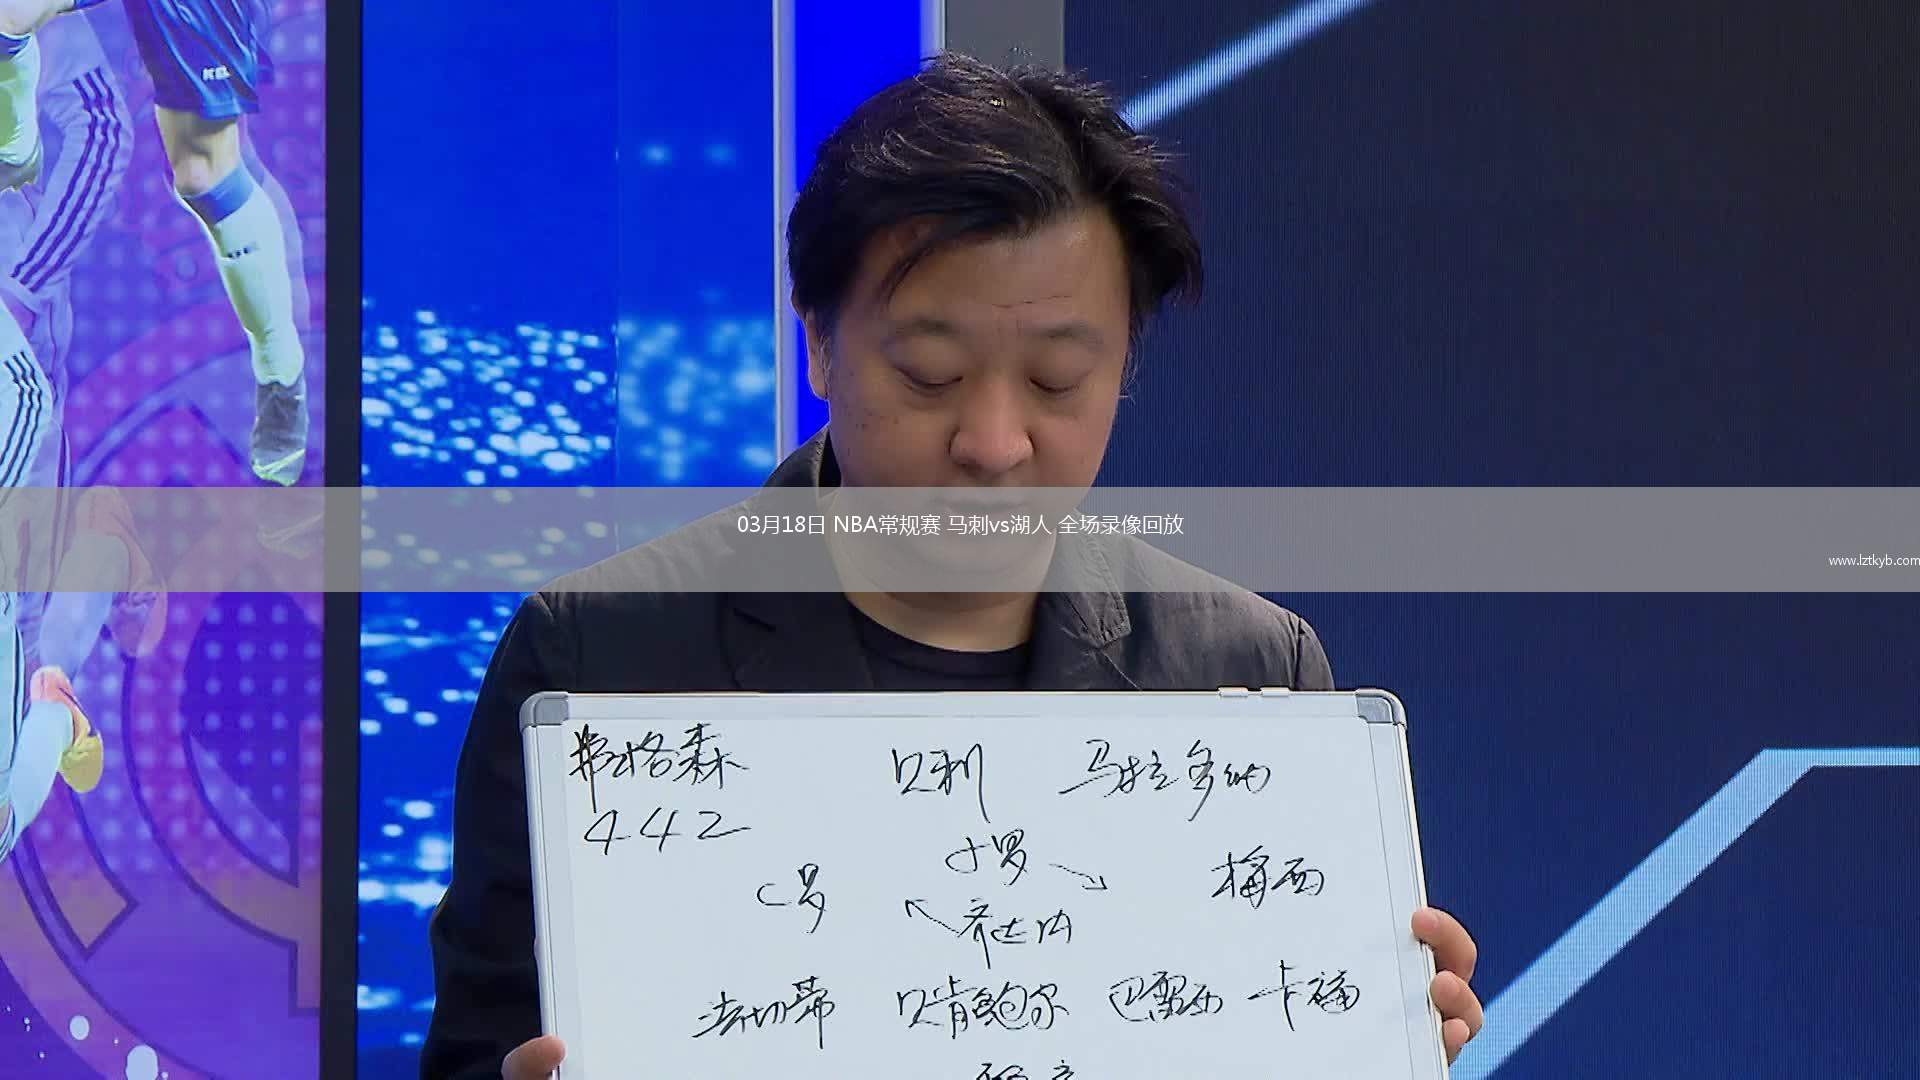 03月18日 NBA常规赛 马刺vs湖人 全场录像回放
www.lztkyb.com
弗格森 贝利 马拉多纳
442
小罗
C罗 梅西
齐达内
法切蒂 贝肯鲍尔 巴雷西 卡福